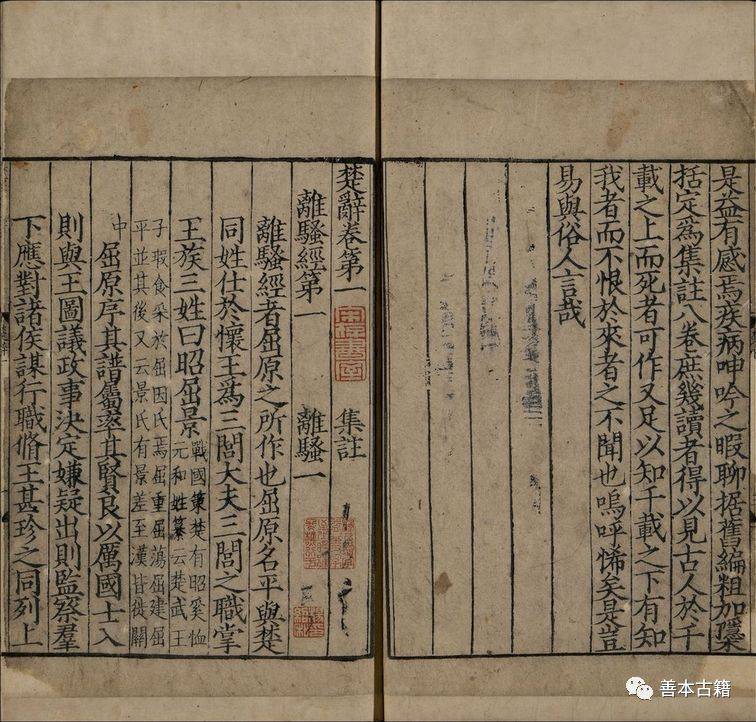 是益有感焉疾病呻吟之暇聊据舊編粗加櫽
括定為集註八卷庶幾讀者得以見古人於千
載之上而死者可作又足以知千載之下有知
我者而不恨於來者之不聞也嗚呼悕矣是豈
易與俗人言哉
楚辭卷第一 集註
離騷經第一 離騷一
離騷經者屈原之所作也屈原名平與楚
同姓仕於懷王為三閭大夫三閭之職掌
王族三姓曰昭屈景 戰國策楚有昭奚恤
元和姓纂云楚武王
子瑕食采於屈因氏焉屈重屈蕩屈建屈
平並其後又云景氏有景差至漢皆徙關
中 屈原序其譜屬率其賢良以厲國士入
則與王圖議政事決定嫌疑出則監察羣
下應對諸侯謀行職脩王甚珍之同列上
善本古籍